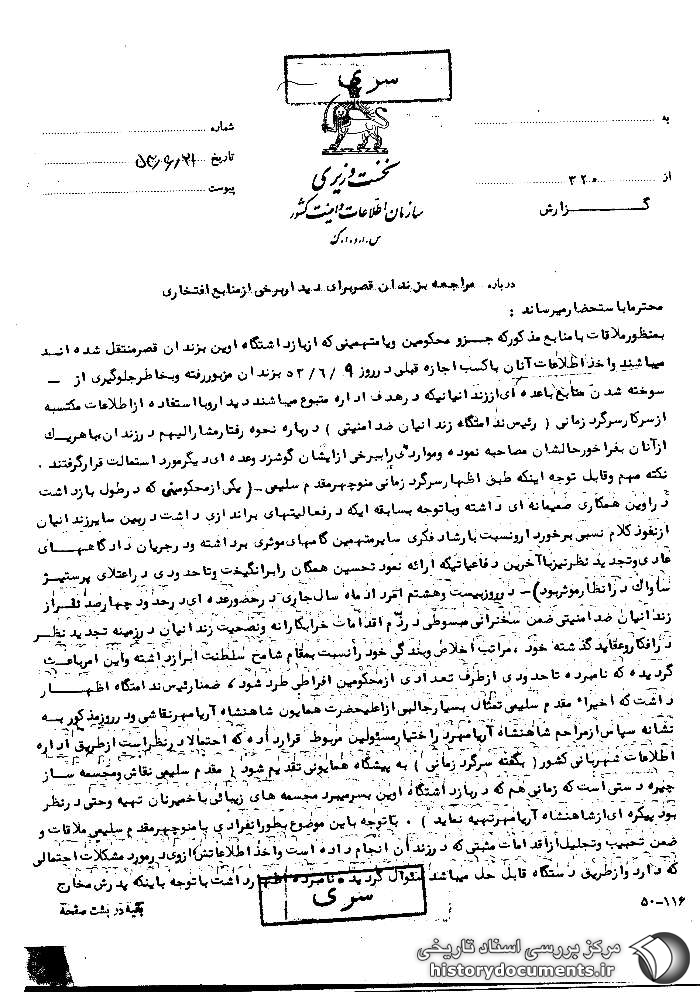 سری
به
شماره
تاریخ ۵۳/۶/۲۱
از ۳۲۰
پیوست
نخست وزیری
سازمان اطلاعات و امنیت کشور
س.ا.و.ا.ک
گزارش
درباره مراجعه بزندان قصر برای دیدار برخی از منابع افتخاری
محترما باستحضار میرساند :
بمنظور ملاقات با منابع مذکور که جزو محکومین ویا متهمینی که از بازداشتگاه اوین بزندان قصر منتقل شده اند
میباشند و اخذ اطلاعات آنان باکسب اجازه قبلی در روز ۵۳/۶/۹ بزندان مزبور رفته وبخاطر جلوگیری از -
سوخته شدن منابع با عده ای از زندانیانیکه در هدف اداره متبوع میباشند دیدار وبا استفاده از اطلاعات مکتسبه
از سرکار سرگرد زمانی ( رئیس ندامتگاه زندانیان ضد امنیتی ) درباره نحوه رفتار مشارالیهم در زندان با هریک
از آنان بفراخور حالشان مصاحبه نموده ومواردی را ببرخی از ایشان گوشزد وعده ای دیگر مورد استمالت قرار گرفتند .
نکته مهم وقابل توجه اینکه طبق اظهار سرگرد زمانی منوچهر مقدم سلیمی - ( یکی از محکومینی که در طول بازداشت
در اوین همکاری صمیمانه ای داشته وباتوجه بسابقه ایکه در فعالیتهای براندازی داشت در بین سایر زندانیان
از نفوذ کلام نسبی برخوردار ونسبت بارشاد فکری سایر متهمین گامهای موثری برداشته ودر جریان دادگاههای
عادی وتجدید نظر نیز با آخرین دفاعیاتیکه ارائه نمود تحسین همگان را برانگیخت وتاحدودی در اعتلای پرستیژ
ساواک در انظار موثر بود) - در روز بیست وهشتم امرداد ماه سال جاری در حضور عده ای در حدود چهارصد نفر از
زندانیان ضد امنیتی ضمن سخنرانی مبسوطی در ذم اقدامات خرابکارانه ونصیحت زندانیان در زمینه تجدید نظر
در افکار وعقاید گذشته خود ، مراتب اخلاص وبندگی خود را نسبت بمقام شامخ سلطنت ابراز داشته واین امر باعث
گردیده که نامبرده تاحدودی از طرف تعدادی از محکومین افراطی طرد شود ، ضمنا رئیس ندامتگاه اظهار
داشت که اخیرا" مقدم سلیمی تمثال بسیار جالبی از اعلیحضرت همایون شاهنشاه آریامهر نقاشی ودر روز مذکور به
نشانه سپاس از مراحم شاهنشاه آریامهر در اختیار مسئولین مربوط قرار داده که احتمالا در نظر است از طریق اداره
اطلاعات شهربانی کشور ( بگفته سرگرد زمانی ) به پیشگاه همایونی تقدیم شود ( مقدم سلیمی نقاش ومجسمه ساز
چیره دستی است که زمانی هم که در بازداشتگاه اوین بسر میبرد مجسمه های زیبائی با خمیر نان تهیه وحتی در نظر
بود پیکره ای از شاهنشاه آریامهر تهیه نماید ) . باتوجه باین موضوع بطور انفرادی با منوچهر مقدم سلیمی ملاقات و
ضمن تحبیب وتجلیل از اقدامات مثبتی که در زندان انجام داده است واخذ اطلاعاتش از وی در مورد مشکلات احتمالی
که دارد واز طریق دستگاه قابل حل میباشد سئوال گردید . نامبرده اظهار داشت باتوجه باینکه پدرش مخارج
سری
بقیه در پشت صفحه
۵۰-۱۱۶
مرکز بررسی اسناد تاریخی
historydocuments.ir